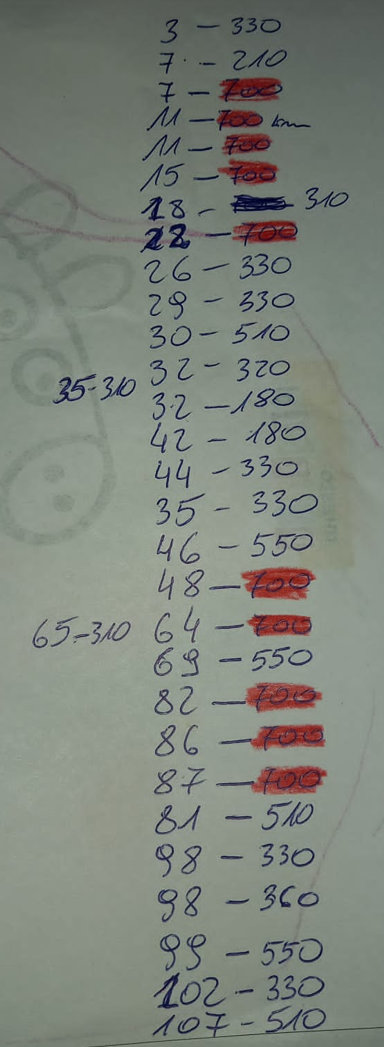 3 - 330
7 - 210
7 - 700
11 - 700 km
11 - 700
15 - 700
18 - 310
22 - 700
26 - 330
29 - 330
30 - 510
32 - 320
35-310
32 - 180
42 - 180
44 - 330
35 - 330
46 - 550
48 - 700
65-310 64 - 700
69 - 550
82 - 700
86 - 700
87 - 700
81 - 510
98 - 330
98 - 360
99 - 550
102 - 330
107 - 510